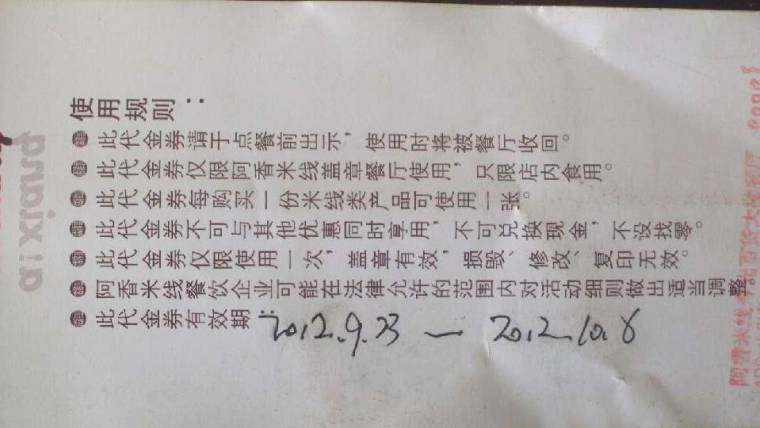 使用规则：
此代金券请于点餐前出示，使用时将被餐厅收回。
此代金券仅限阿香米线盖章餐厅使用，只限店内食用。
此代金券每购买一份米线类产品可使用一张。
此代金券不可与其他优惠同时享用，不可兑换现金，不设找零。
此代金券仅限使用一次，盖章有效，损毁、修改、复印无效。
阿香米线餐饮企业可能在法律允许的范围内对活动细则做出适当调整。
此代金券有效期：2012.9.23 — 2012.10.8
阿香米线